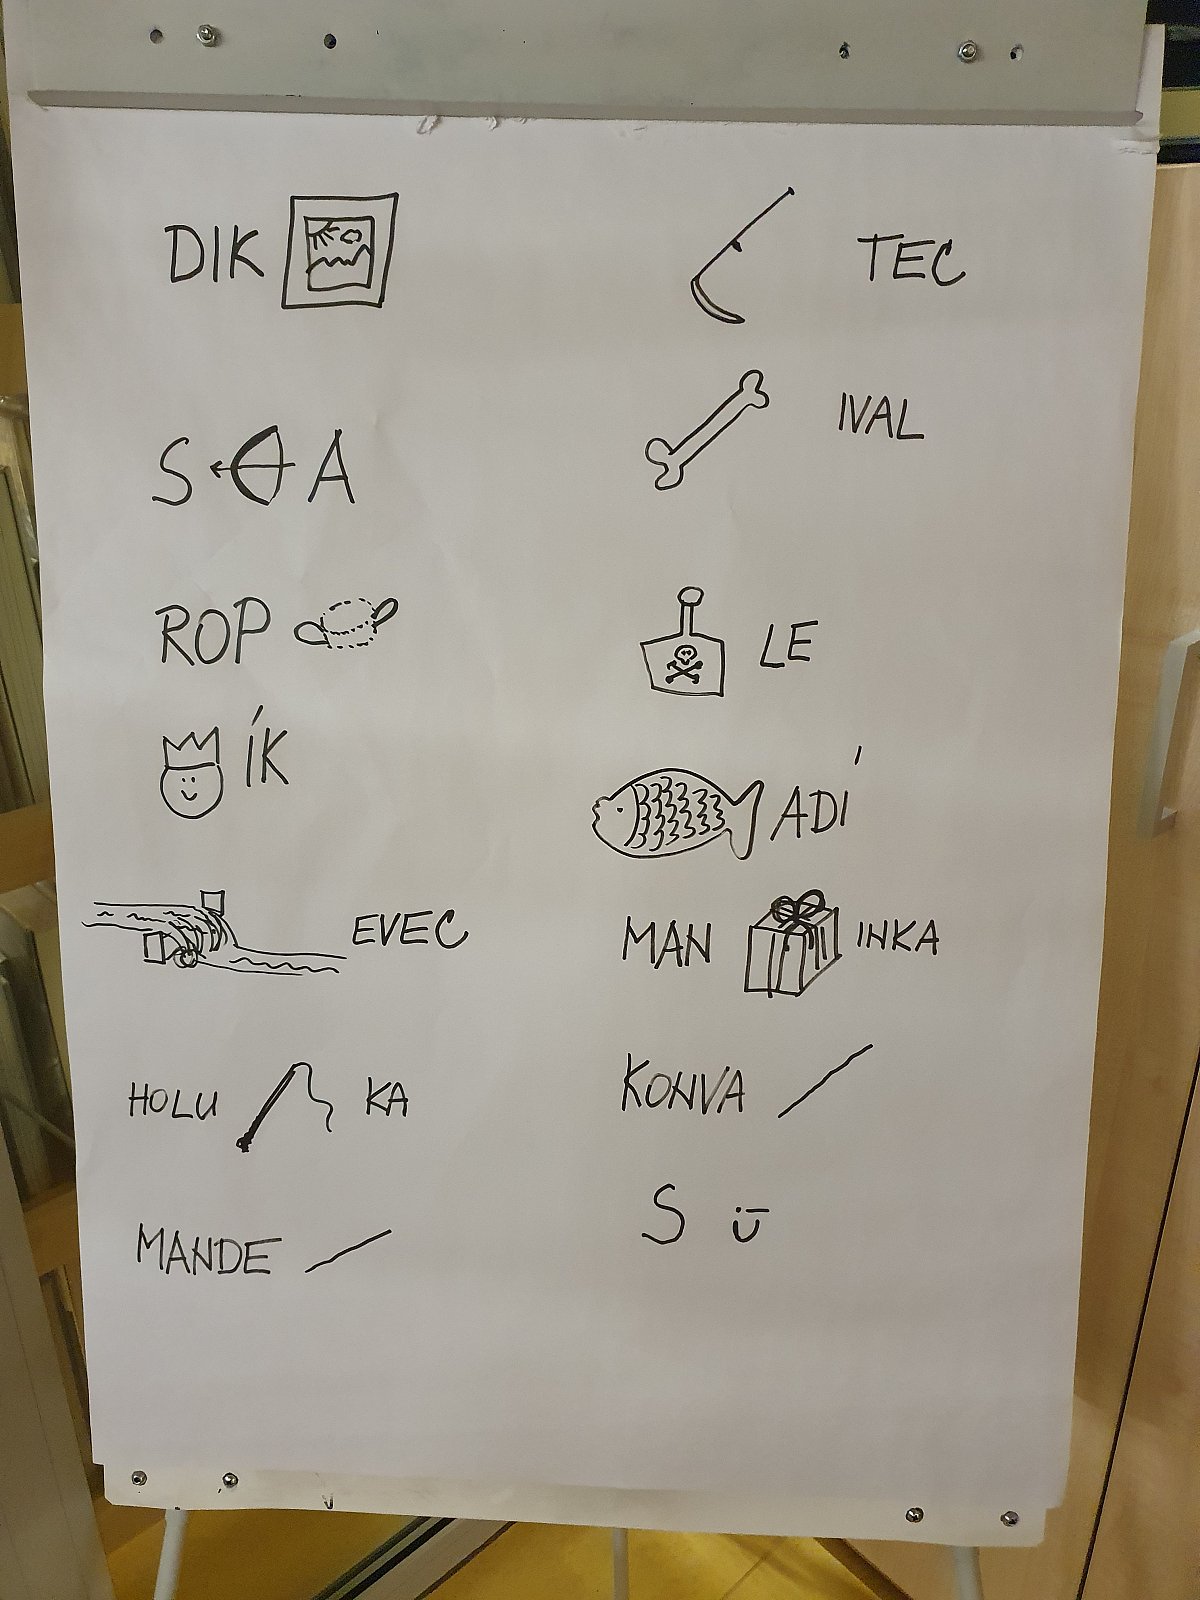 DIK
TEC
IVAL
S A
ROP
LE
ÍK
ADÍ
EVEC
MAN INKA
HOLU KA
KONVA
S
MANDE